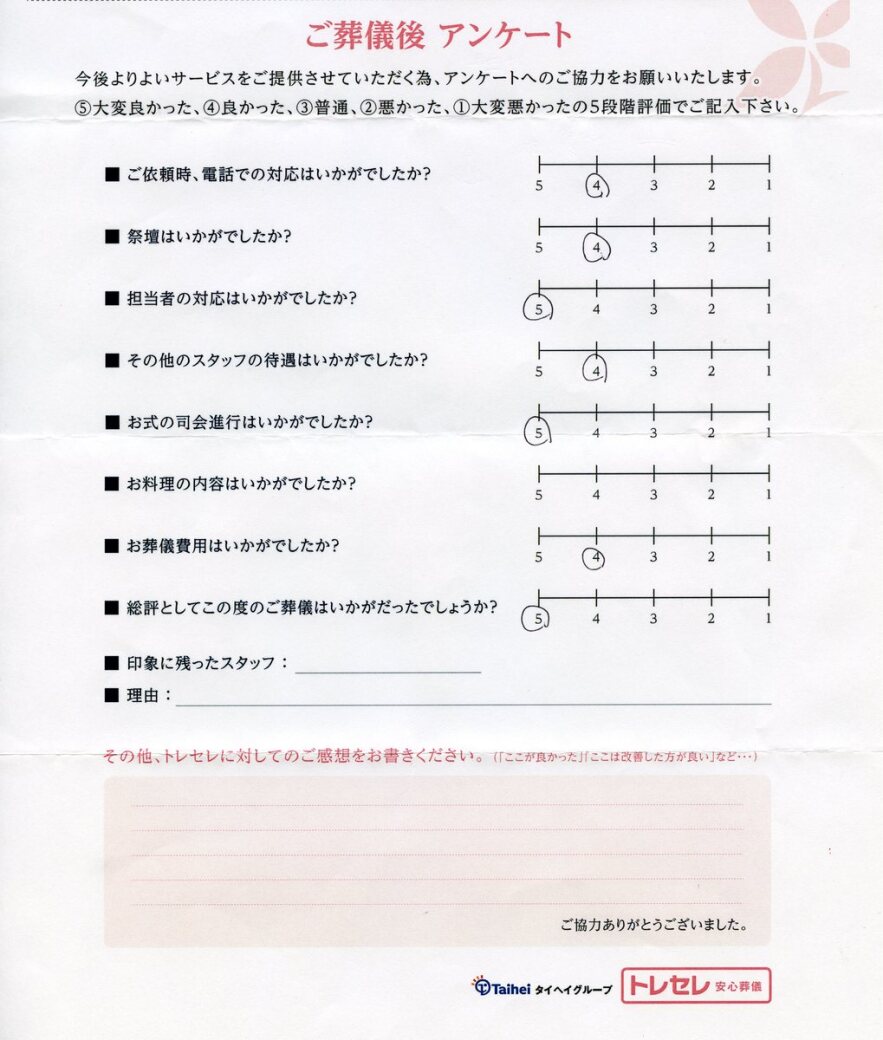 ご葬儀後 アンケート
今後よりよいサービスをご提供させていただく為、アンケートへのご協力をお願いいたします。
⑤大変良かった、④良かった、③普通、②悪かった、①大変悪かったの5段階評価でご記入下さい。
■ ご依頼時、電話での対応はいかがでしたか? 5 4 3 2 1
■ 祭壇はいかがでしたか? 5 4 3 2 1
■ 担当者の対応はいかがでしたか? 5 4 3 2 1
■ その他のスタッフの待遇はいかがでしたか? 5 4 3 2 1
■ お式の司会進行はいかがでしたか? 5 4 3 2 1
■ お料理の内容はいかがでしたか? 5 4 3 2 1
■ お葬儀費用はいかがでしたか? 5 4 3 2 1
■ 総評としてこの度のご葬儀はいかがだったでしょうか? 5 4 3 2 1
■ 印象に残ったスタッフ：
■ 理由：
その他、トレセレに対してのご感想をお書きください。(「ここが良かった」「ここは改善した方が良い」など…)
ご協力ありがとうございました。
Taihei タイヘイグループ トレセレ 安心葬儀